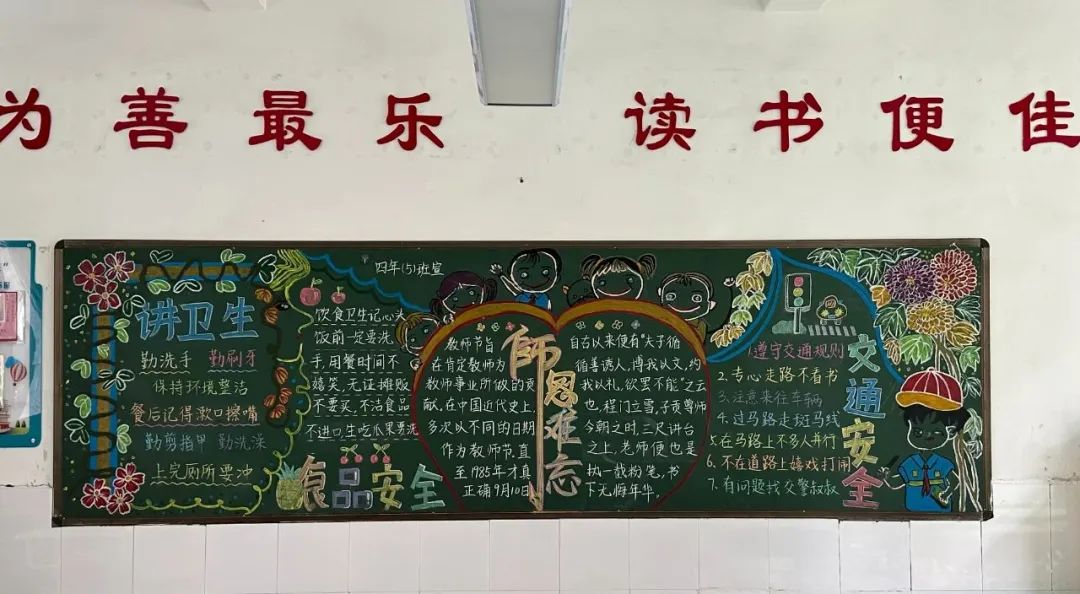 为善最乐 读书便佳
四年(5)班宣
讲卫生
勤洗手 勤刷牙
保持环境整洁
餐后记得漱口擦嘴
勤剪指甲 勤洗澡
上完厕所要冲
饮食卫生记心头
饭前一定要洗
手,用餐时间不
嬉笑,无证摊贩
不要买,不洁食品
不进口生吃瓜果要洗
食品安全
教师节旨
在肯定教师为
教师事业所做的贡
献,在中国近代史上,
多次以不同的日期
作为教师节,直
至1985年才真
正确9月10日
師恩难忘
自古以来便有"夫子循
循善诱人,博我以文,约
我以礼,欲罢不能"之云
也,程门立雪,子贡尊师
今朝之时,三尺讲台
之上,老师便也是
执一载粉笔,书
下无悔年华。
1.遵守交通规则
2.专心走路不看书
3.注意来往车辆
4.过马路走斑马线
5.在马路上不多人并行
6.不在道路上嬉戏打闹
7.有问题找交警叔叔
交通安全